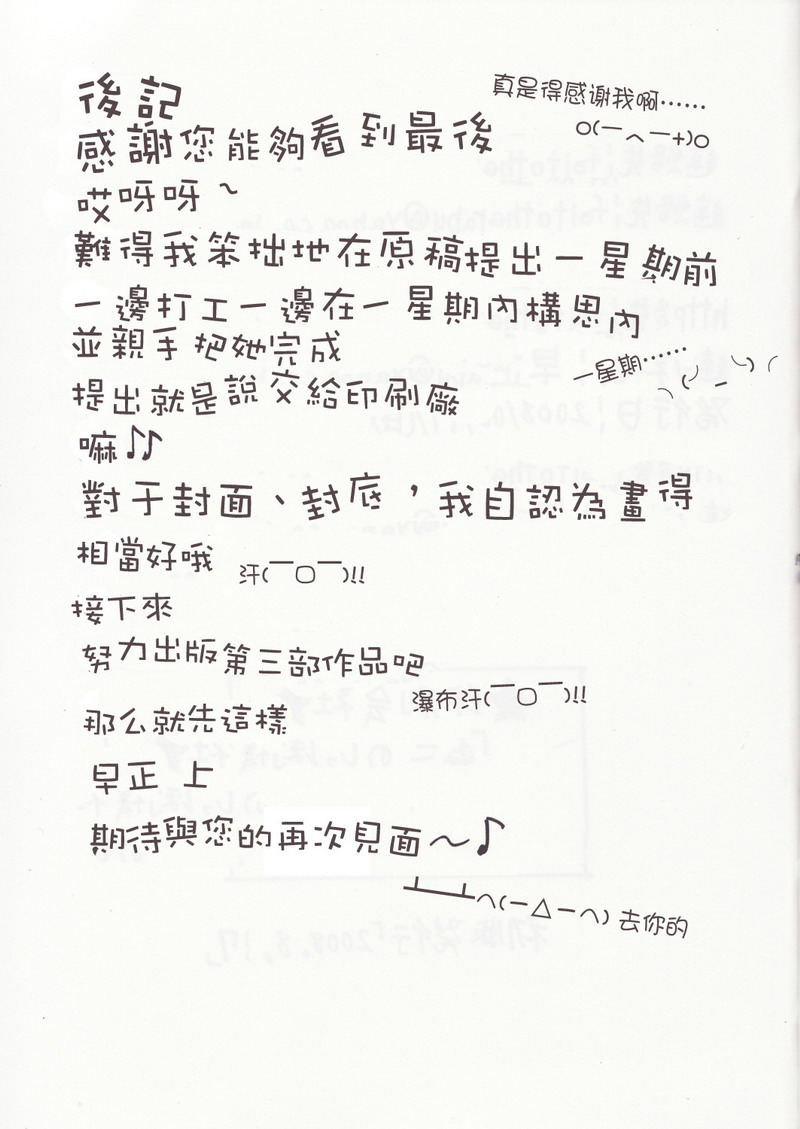 後記
真是得感谢我啊⋯⋯
o(一へ一+)o
感謝您能夠看到最後
哎呀呀~
難得我笨拙地在原稿提出一星期前
一邊打工一邊在一星期內構思內
並親手把她完成
一星期⋯⋯
提出就是說交給印刷廠
嘛♪♪
對于封面、封底，我自認為畫得
相當好哦
汗(￣口￣)!!
接下來
努力出版第三部作品吧
瀑布汗(￣口￣)!!
那么就先這樣
早正 上
期待與您的再次見面～♪
┻━┻へ(一△一へ) 去你的